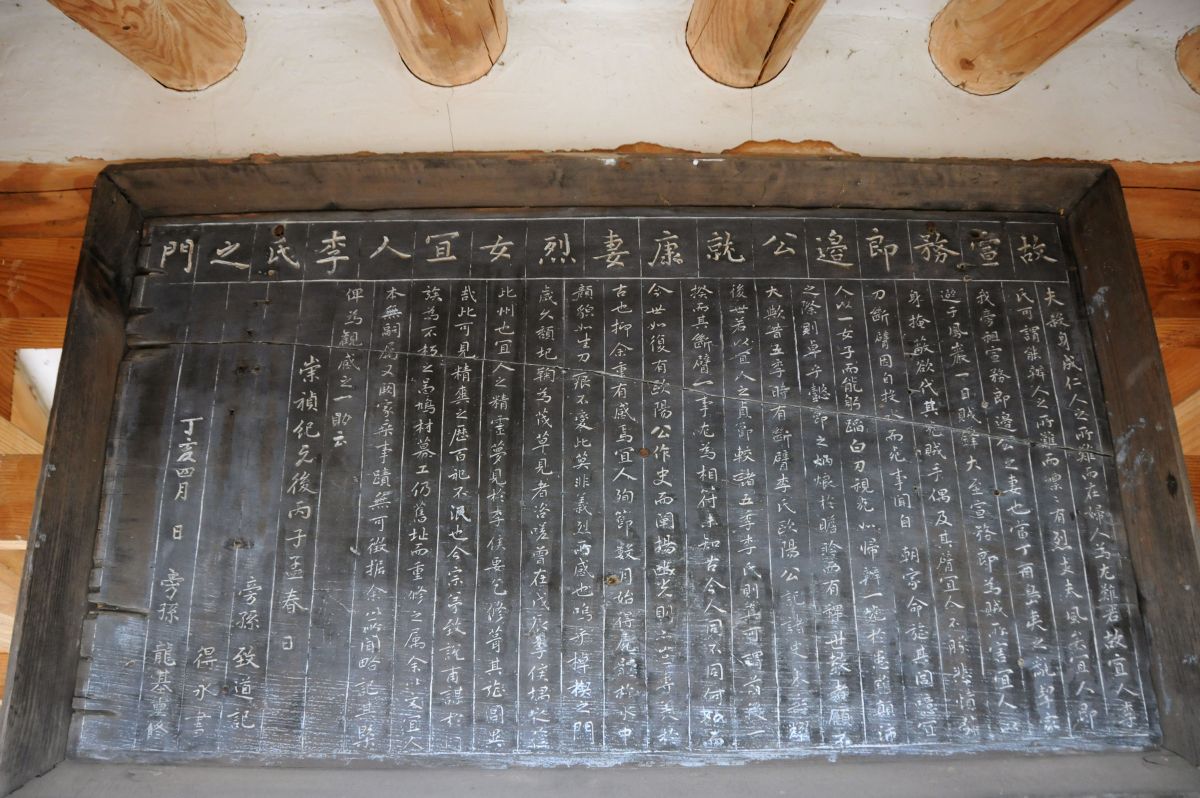 故宣務郎邉公就康妻烈女宜人李氏之門
夫殺身成仁人之所難而在婦人為尤難若故宜人李
氏可謂能辦人之所難而凛凛有烈丈夫風矣宜人即
我旁祖宣務郎邉公之妻也當丁酉島夷之亂
避于風巖一日賊鋒大至宣務郎為賊所害宜人以
身掩蔽欲代其死賊手偶及其臂宜人不勝悲憤
刀斷臂因自投 而死事聞自 朝家命旌其閭噫
人以一女子而能躬蹈白刃視死如歸辦一 於 顛沛
之際則卓乎懿節之炳烺於
大歟昔五季時有斷臂李氏歐陽公記諸史人
後世若以宜人之貞節較諸五季李氏則 可謂前後一
揆而其斷臂一事尤為相符未知古今人同不同何如而
今世如復有歐陽公作史而闡揚幽光則
古也抑余重有感焉宜人殉節數月始得屍 於水中
顏貌如生刀痕不變此莫非義烈所感也嗚乎棹楔之門
歲久頹圮鞠為茂草見者咨嗟曾在戊辰李侯
此州也宜人之精靈夢見於李侯 修葺其
哉此可見精靈之歷百祀不泯也今宗 致說甫謀於
族為不朽之啚鳩材募工仍舊址而重修之属余以文宜人
本無嗣属又閼家乘事蹟無可徵据 余以所聞略記其槩
俾為觀感之一助云
崇禎紀元後丙子孟春 日
旁孫 致道記
得永書
丁亥四月 日 旁孫 龍基重修